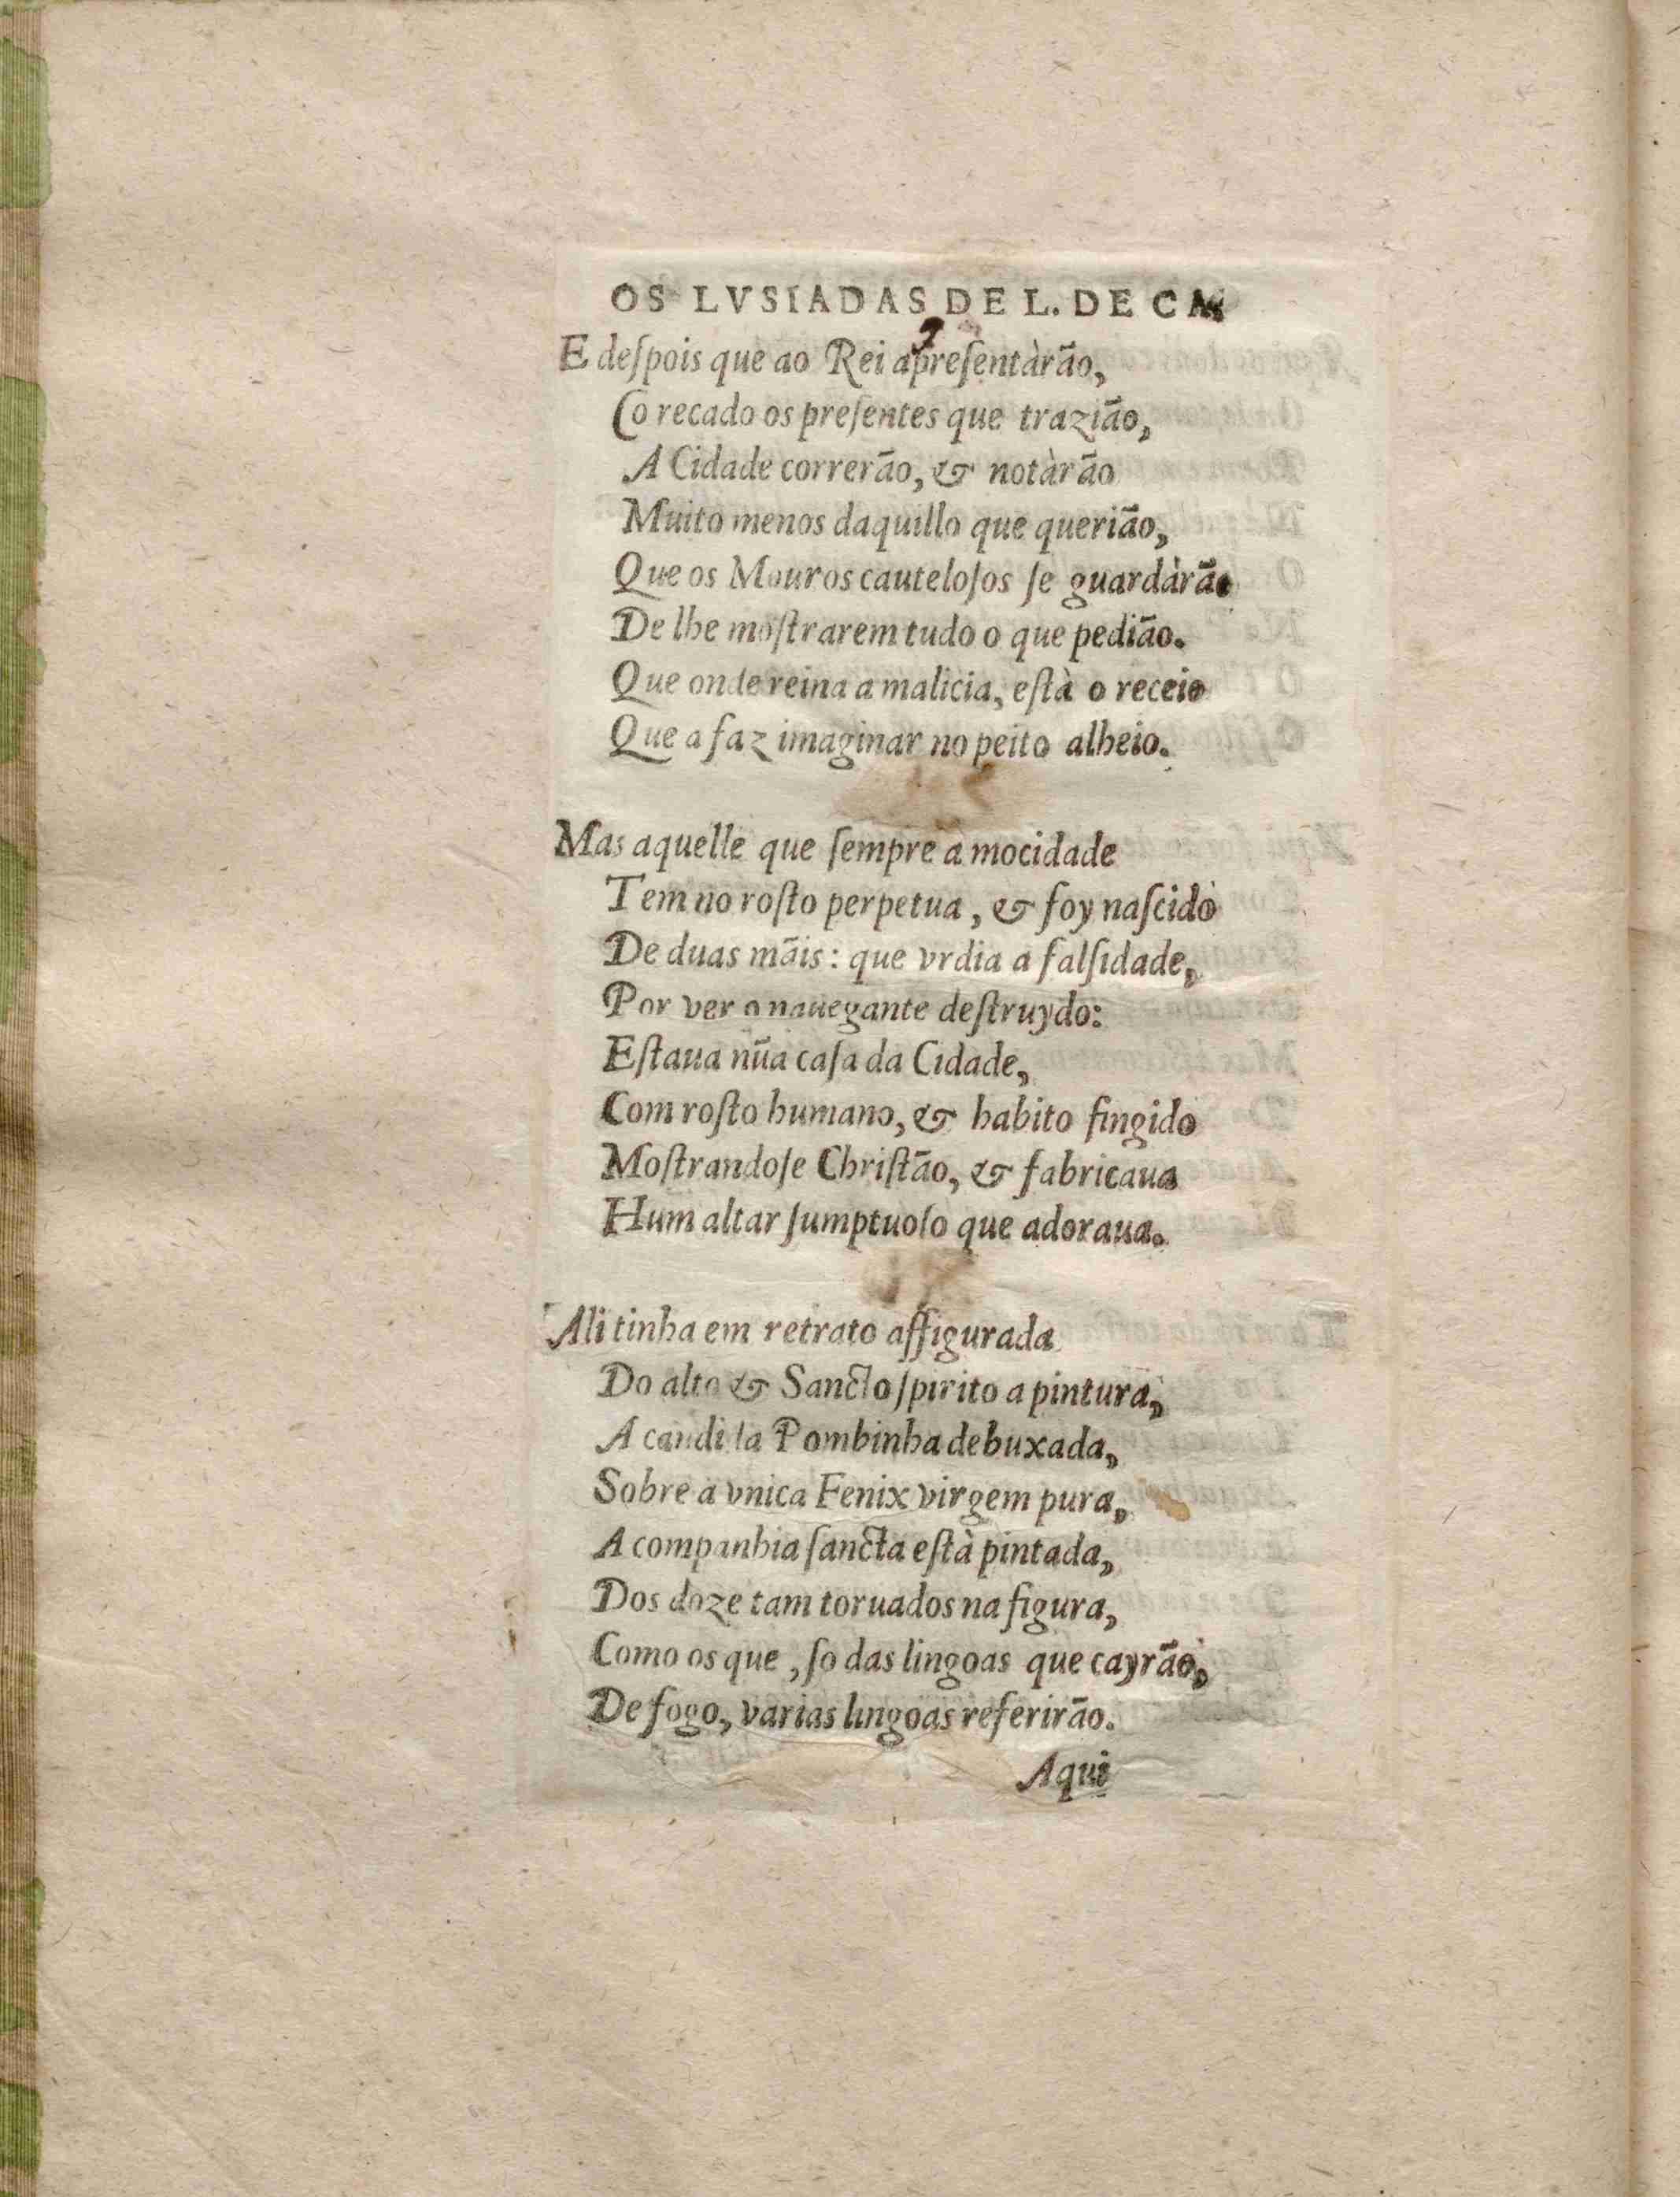 OS LVSIADAS DE L. DE CA.
E deſpois que ao Rei apreſentàrão,
Co recado os preſentes que trazião,
A Cidade correrão, & notàrão
Muito menos daquillo que querião,
Que os Mouros cauteloſos ſe guardàrão
De lhe moſtrarem tudo o que pedião.
Que onde reina a malicia, eſtà o receio
Que a faz imaginar no peito alheio.
Mas aquelle que ſempre a mocidade
Tem no roſto perpetua, & foy naſcido
De duas mãis: que vrdia a falſidade,
Por ver o nauegante deſtruydo:
Eſtaua nũa caſa da Cidade,
Com roſto humano, & habito fingido
Moſtrandoſe Chriſtão, & fabricaua
Hum altar ſumptuoſo que adoraua.
Ali tinha em retrato affigurada
Do alto & Sancto ſpirito a pintura,
A candida Pombinha debuxada,
Sobre a vnica Fenix virgem pura,
A companhia ſancta eſtà pintada,
Dos doze tam toruados na figura,
Como os que, ſo das lingoas que cayrão,
De fogo, varias lingoas referirão.
Aqui